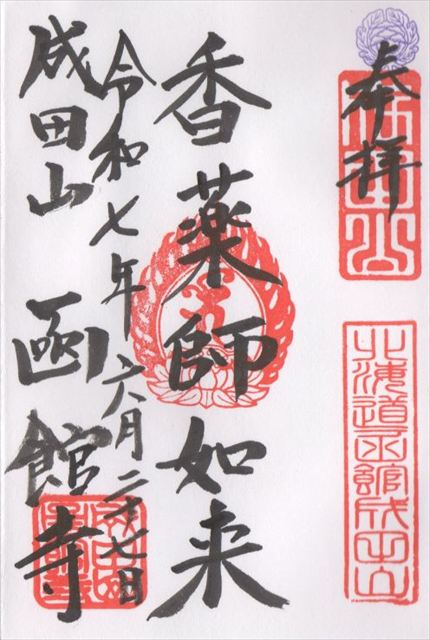 奉拝
成田山
北海道函館成田山
香薬師如来
令和七年六月二十七日
成田山 函館寺